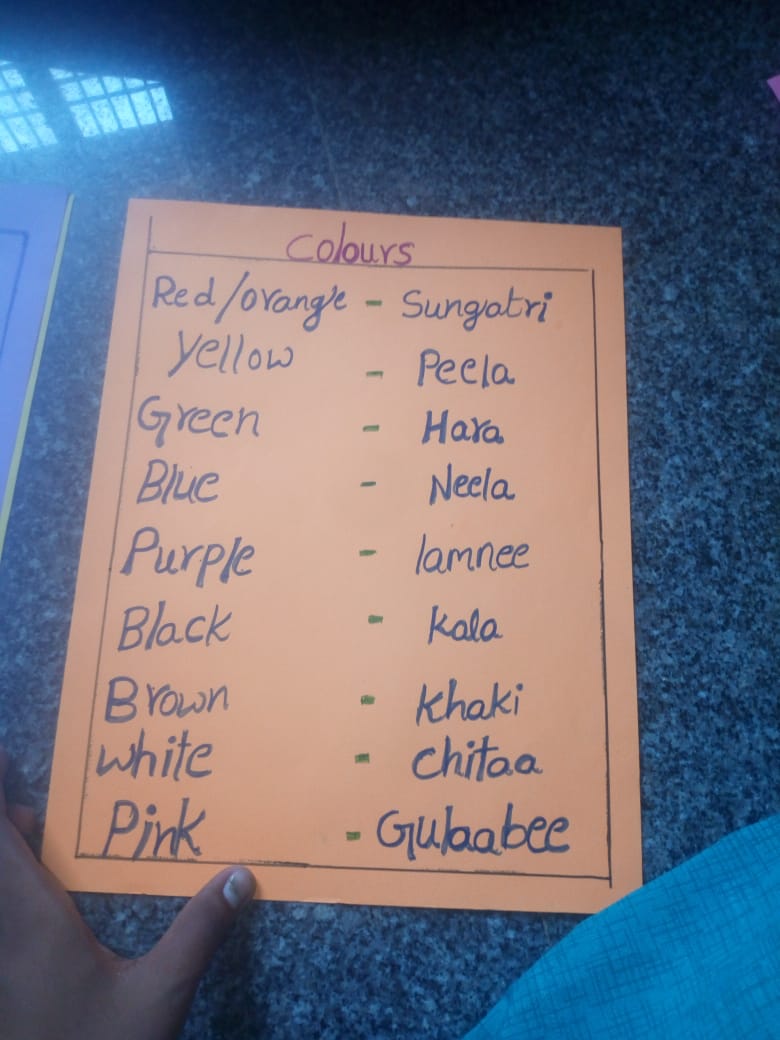 Colours
Red/orange - Sungatri
Yellow - Peela
Green - Hara
Blue - Neela
Purple - Iamnee
Black - Kala
Brown - Khaki
White - Chitaa
Pink - Gulaabee